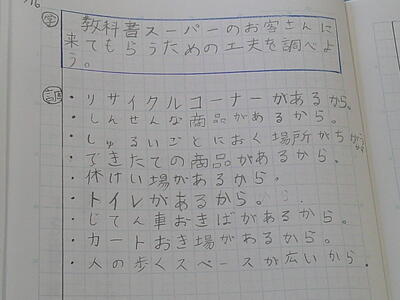 学
教科書スーパーのお客さんに
来てもらうための工夫を調べよ
う。
調
・リサイクルコーナーがあるから。
・しんせんな商品があるから。
・しゅるいごとにおく場所がちがうから
・できたての商品があるから。
・休けい場があるから。
・トイレがあるから。
・じてん車おきばがあるから。
・カートおき場があるから。
・人の歩くスペースが広いから。